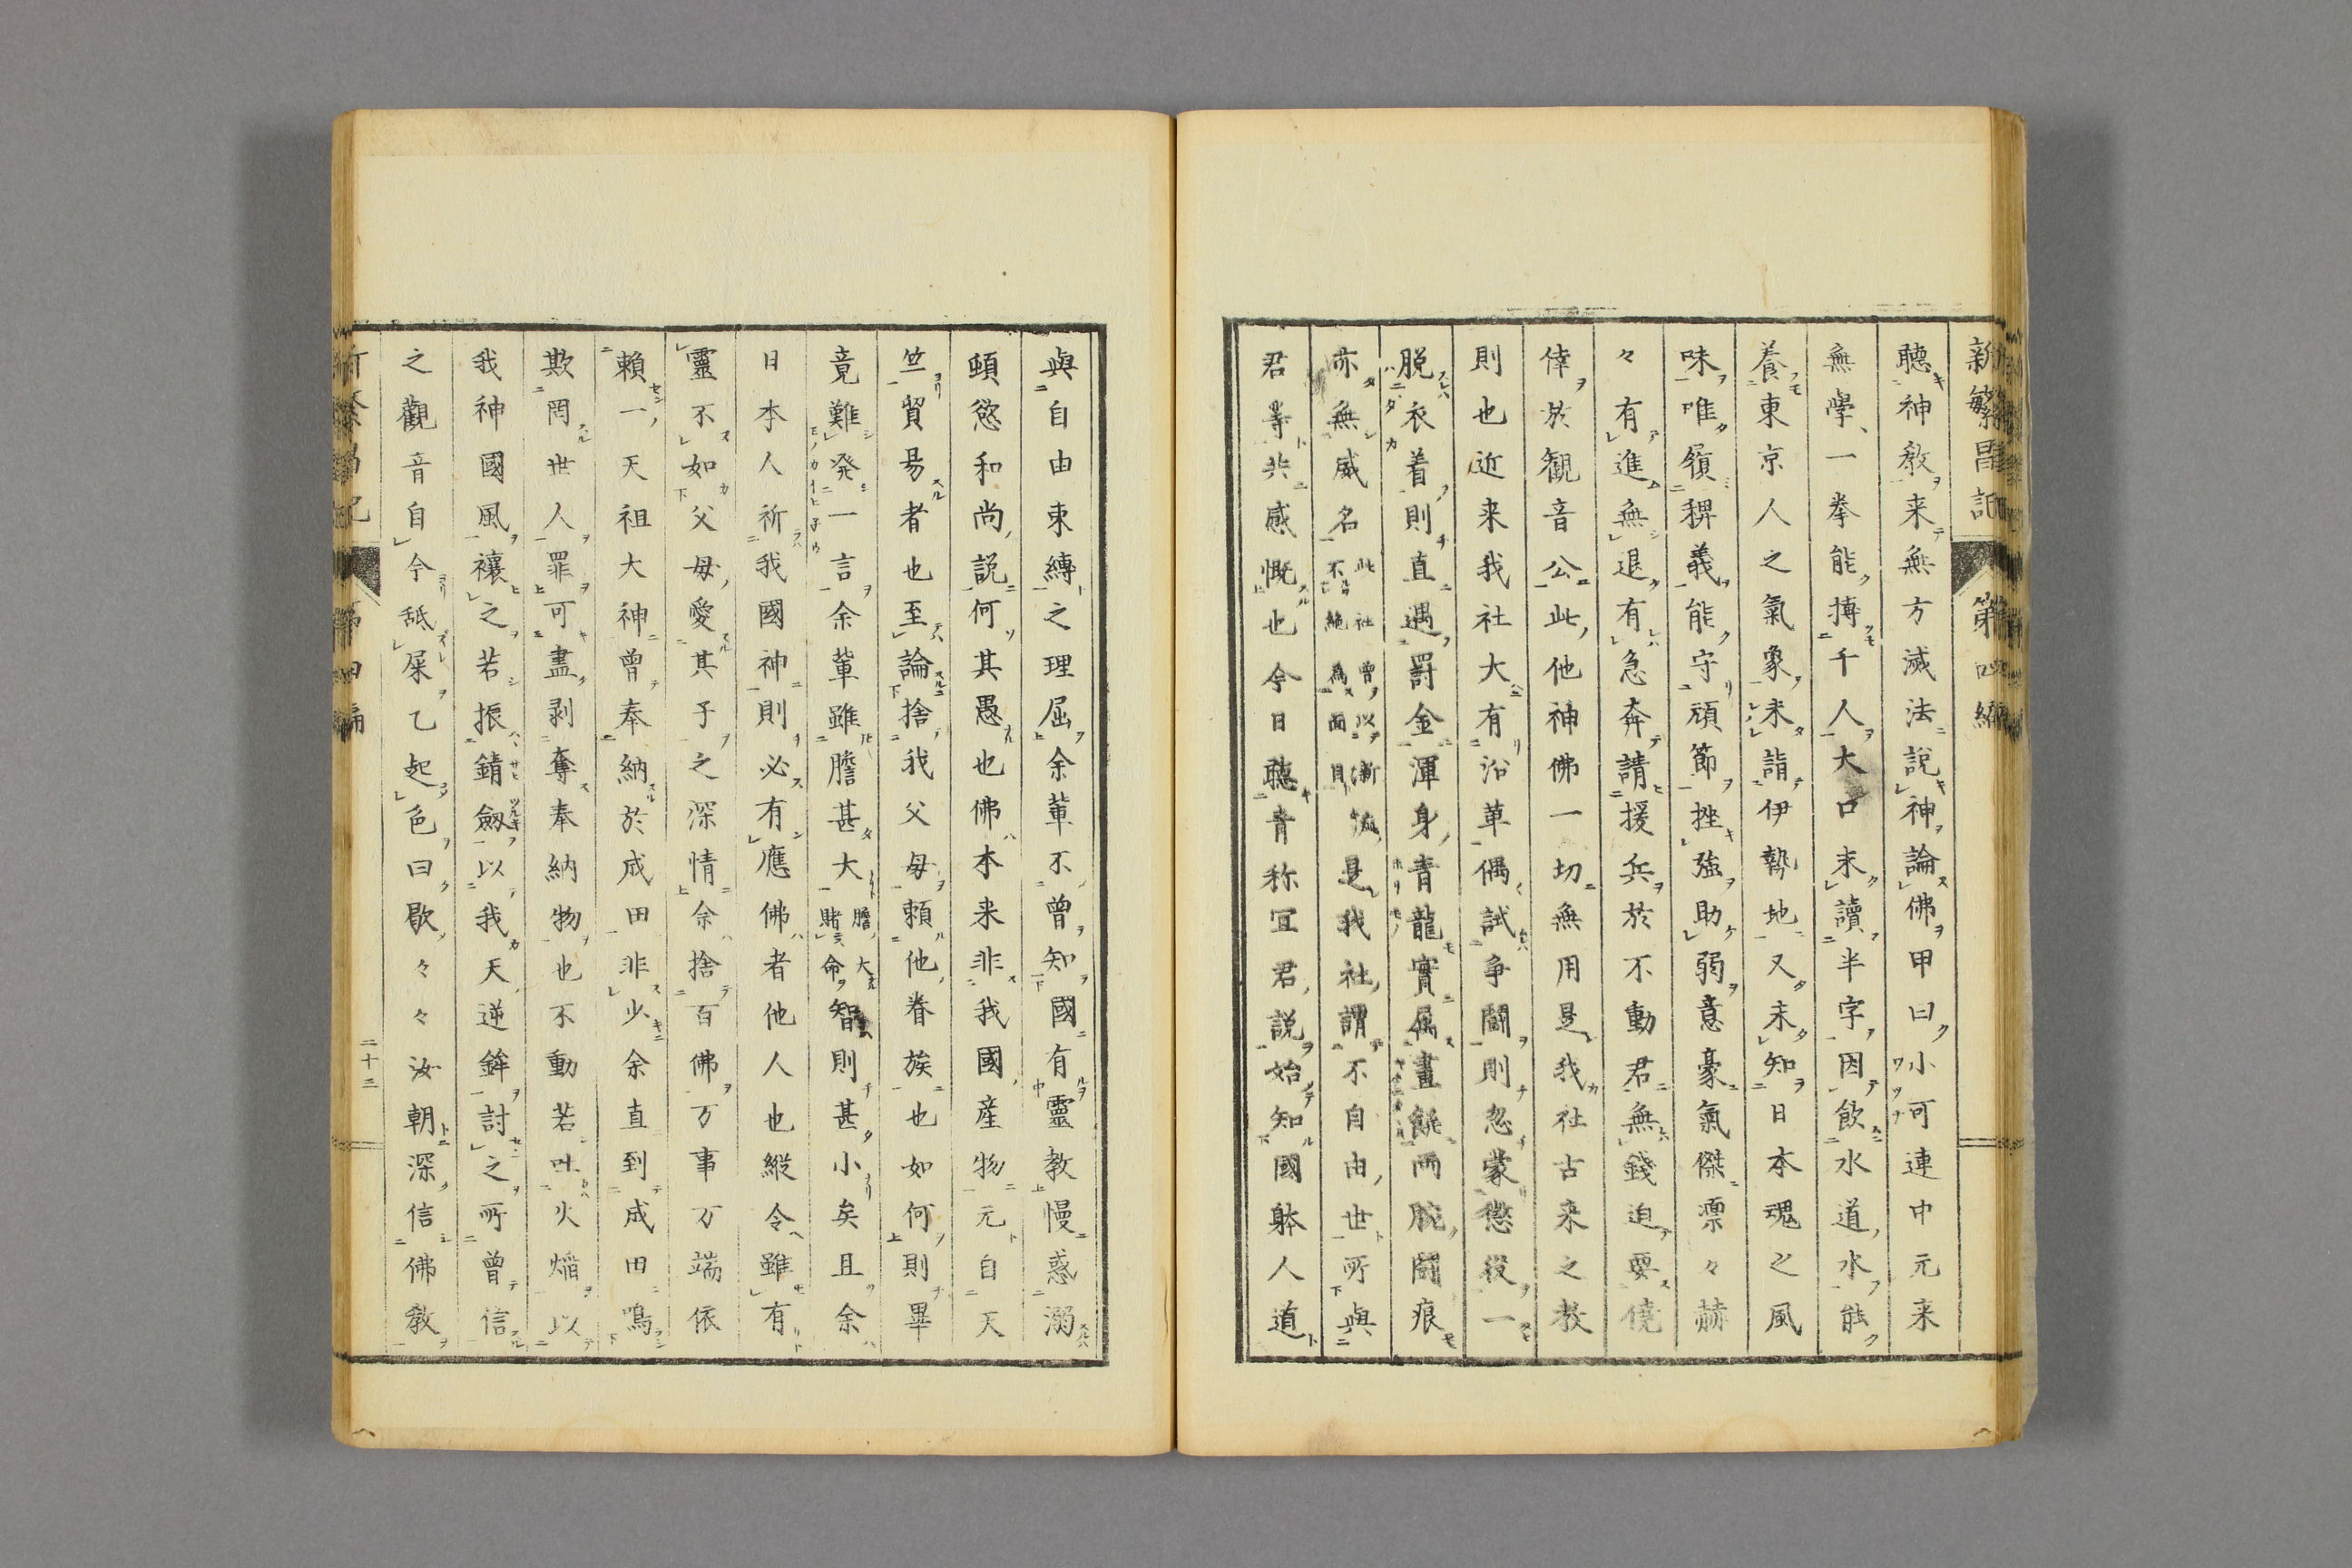 新繁昌記 第四編
聽神教来無方滅法説神論佛甲曰小可連中元来
無學、一拳能搏千人大口未讀半字因飲水道水能
養東京人之氣象未詣伊勢地又未知日本魂之風
味唯履稗義能守頑節挫強助弱意豪氣傑凛々赫
々有進無退有急奔請援兵於不動君無錢迫要僥
倖於観音公此他神佛一切無用是我社古来之教
則也近来我社大有沿革偶試争鬪則忽蒙懲役一
脱衣着則直遇罰金渾身青龍實属畫餅両腕鬪痕
亦無威名此社曾以漸流不絶為面目是我社謂不自由世所與
君等共感慨也今日聽青称冝君説始知國躰人道
與自由束縛之理屈余輩不曾知國有靈教慢惑溺
頤慾和尚説何其愚也佛本来非我國産物元自天
竺貿易者也至論捨我父母頼他眷族也如何則畢
竟難発一言余輩雖膽甚大膽大賭命智則甚小矣且余
日本人祈我國神則必有應佛者他人也縦令雖有
靈不如父母愛其子之深情余捨百佛万事万端依
頼一天祖大神曾奉納於成田非少余直到成田鳴
欺罔世人罪可盡剥奪奉納物也不動若吐火焔以
我神國風禳之若振錆劔以我天逆鉾討之所曾信
之觀音自今舐屎乙起色曰歇々々汝朝深信佛教
二十三